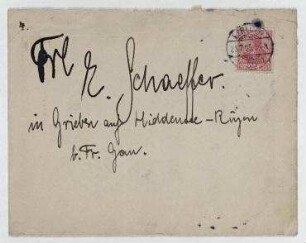 Frl E. Schaeffer.
in Grieben auf Hiddensee-Rügen
b. Fr. Gau.